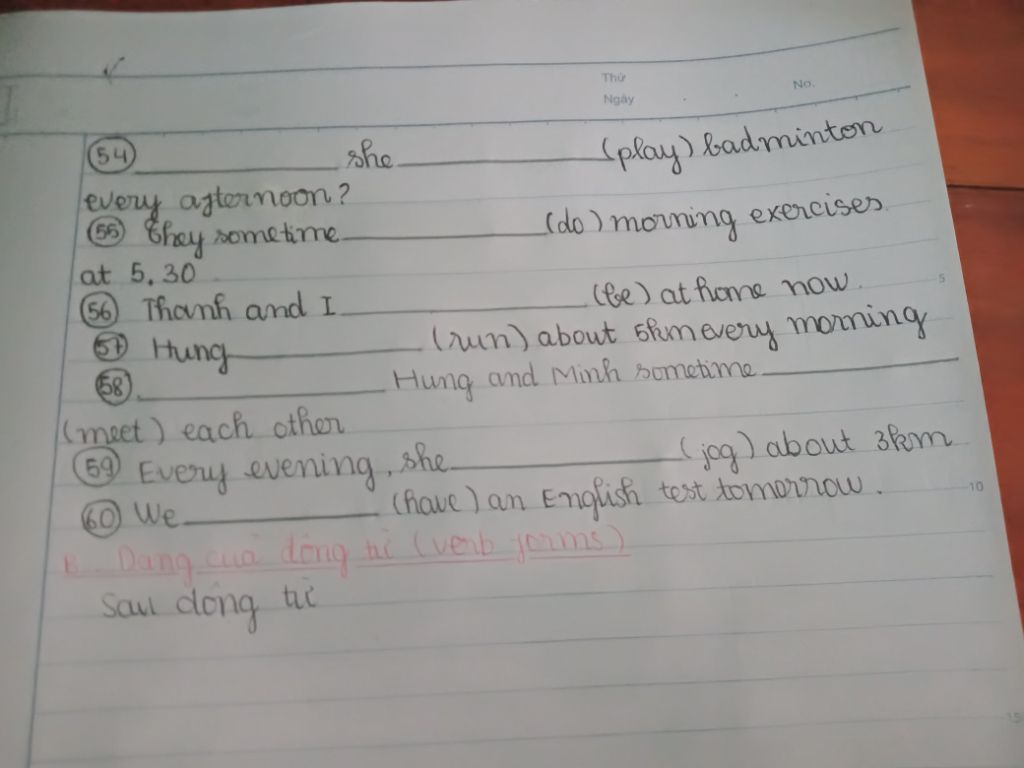 Thứ
Ngày
No.
54 ________ she ________ (play) badminton
every afternoon?
55 They sometime ________ (do) morning exercises
at 5.30
56 Thanh and I ________ (be) at home now.
57 Hung ________ (run) about 5km every morning
58 ________ Hung and Minh sometime ________
(meet) each other
59 Every evening, she ________ (jog) about 3km
60 We ________ (have) an English test tomorrow.
B. Dạng của động từ (verb forms)
Sau động từ
5
10
15